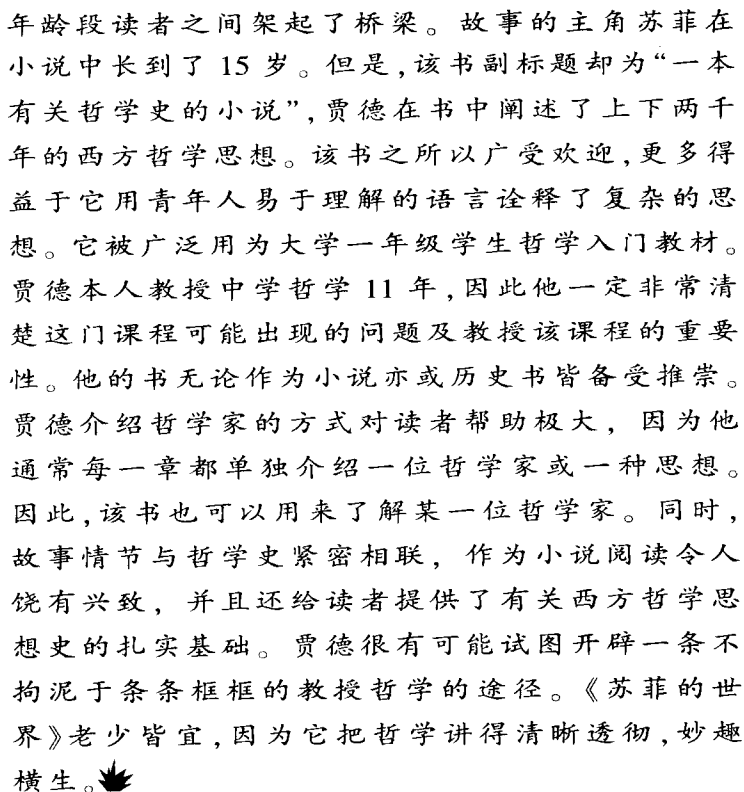 年龄段读者之间架起了桥梁。故事的主角苏菲在
小说中长到了 15 岁。但是,该书副标题却为“一本
有关哲学史的小说”,贾德在书中阐述了上下两千
年的西方哲学思想。该书之所以广受欢迎,更多得
益于它用青年人易于理解的语言诠释了复杂的思
想。它被广泛用为大学一年级学生哲学入门教材。
贾德本人教授中学哲学 11 年,因此他一定非常清
楚这门课程可能出现的问题及教授该课程的重要
性。他的书无论作为小说亦或历史书皆备受推崇。
贾德介绍哲学家的方式对读者帮助极大，因为他
通常每一章都单独介绍一位哲学家或一种思想。
因此,该书也可以用来了解某一位哲学家。同时，
故事情节与哲学史紧密相联，作为小说阅读令人
饶有兴致，并且还给读者提供了有关西方哲学思
想史的扎实基础。贾德很有可能试图开辟一条不
拘泥于条条框框的教授哲学的途径。《苏菲的世
界》老少皆宜,因为它把哲学讲得清晰透彻,妙趣
横生。